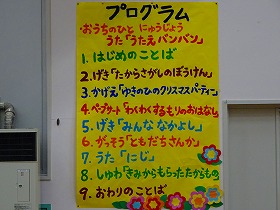 プログラム
おうちのひと にゅうじょう
うた「うたえバンバン」
1. はじめのことば
2. げき「たからさがしのぼうけん」
3. かげえ「ゆきのひのクリスマスパーティー」
4. ペープサート「わくわくするもりのおはなし」
5. げき「みんな なかよし」
6. がっそう「ともだちさんか」
7. うた「にじ」
8. しゅわ「きみからもらったたからもの」
9. おわりのことば